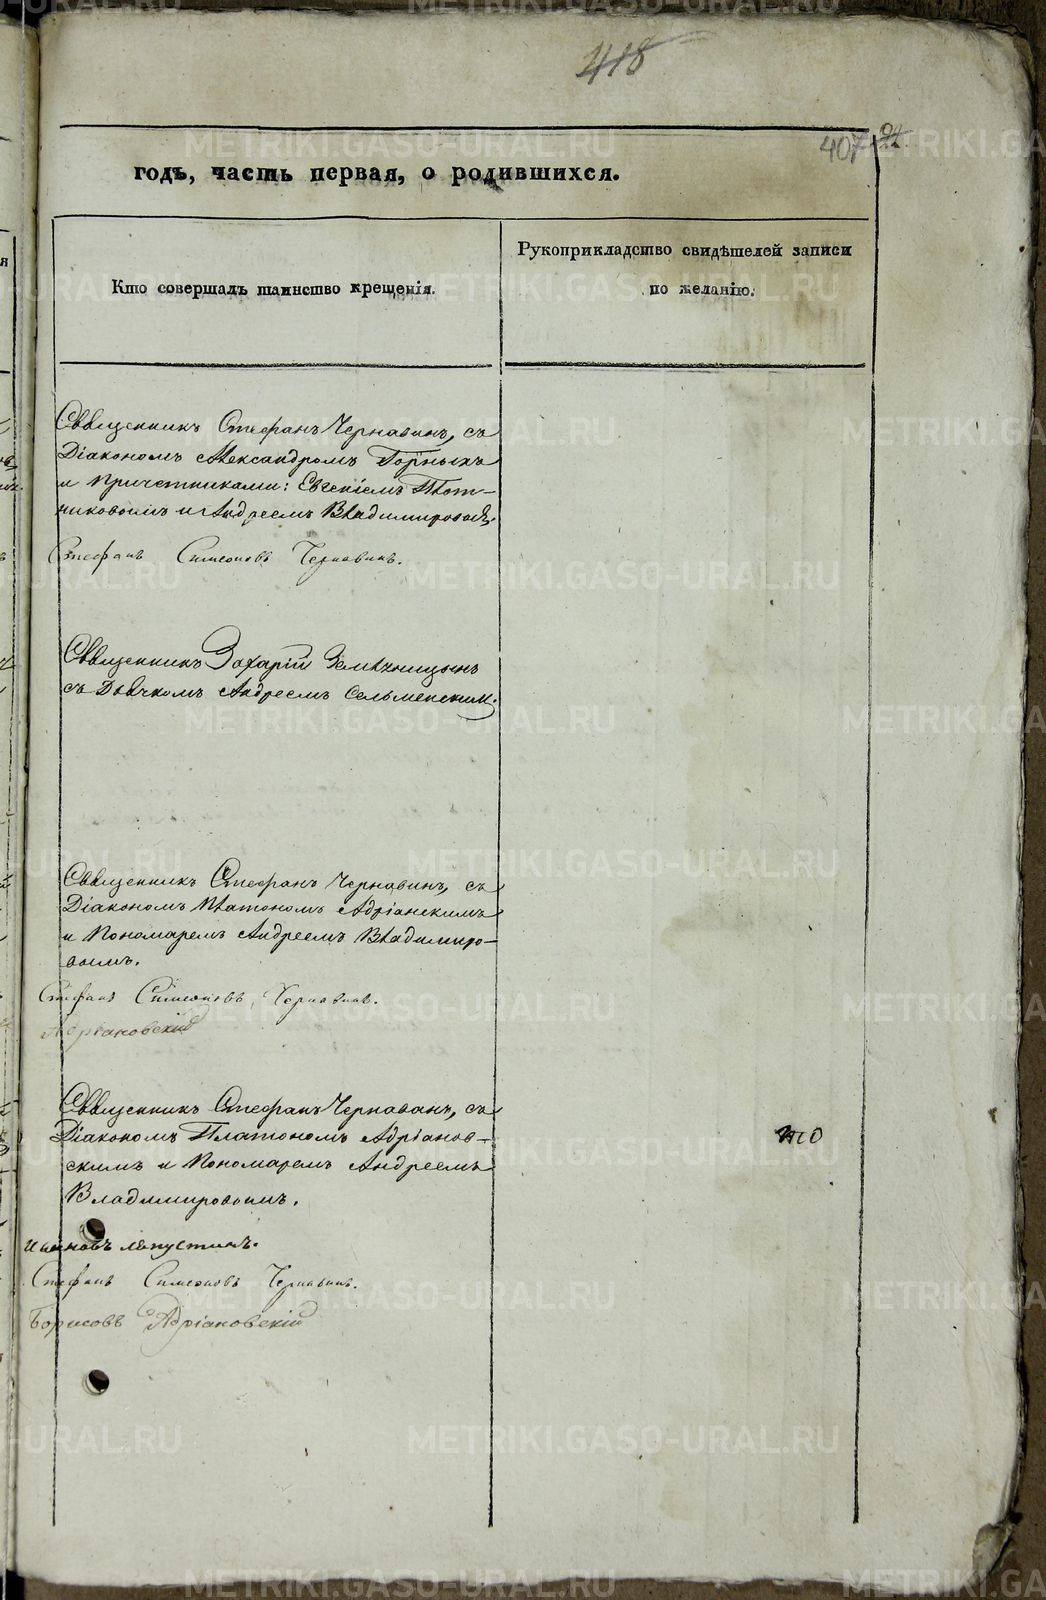 418
407
годъ, часть первая, о родившихся.
Кто совершалъ таинство крещенія.
Рукоприкладство свидѣтелей записи
по желанію.
Священникъ Стефанъ Чернавинъ, съ
Діакономъ Александромъ Горныхъ
и причетниками: Евгеніемъ Плот-
никовымъ и Андреемъ Владимировымъ.
Стефанъ Симеоновъ Чернавинъ.
Священникъ Захарій Земляницынъ
съ Дьячкомъ Андреемъ Сельменскимъ.
Священникъ Стефанъ Чернавинъ, съ
Діакономъ Платономъ Адріанскимъ
и Пономаремъ Андреемъ Владимиро-
вымъ.
Стефанъ Симеоновъ Чернавинъ.
Адріановскій
Священникъ Стефанъ Чернавинъ, съ
Діакономъ Платономъ Адріанов-
скимъ и Пономаремъ Андреемъ
Владимировымъ.
Стефанъ Симеоновъ Чернавинъ.
Борисовъ Адріановскій
то
METRIKI.GASO-URAL.RU